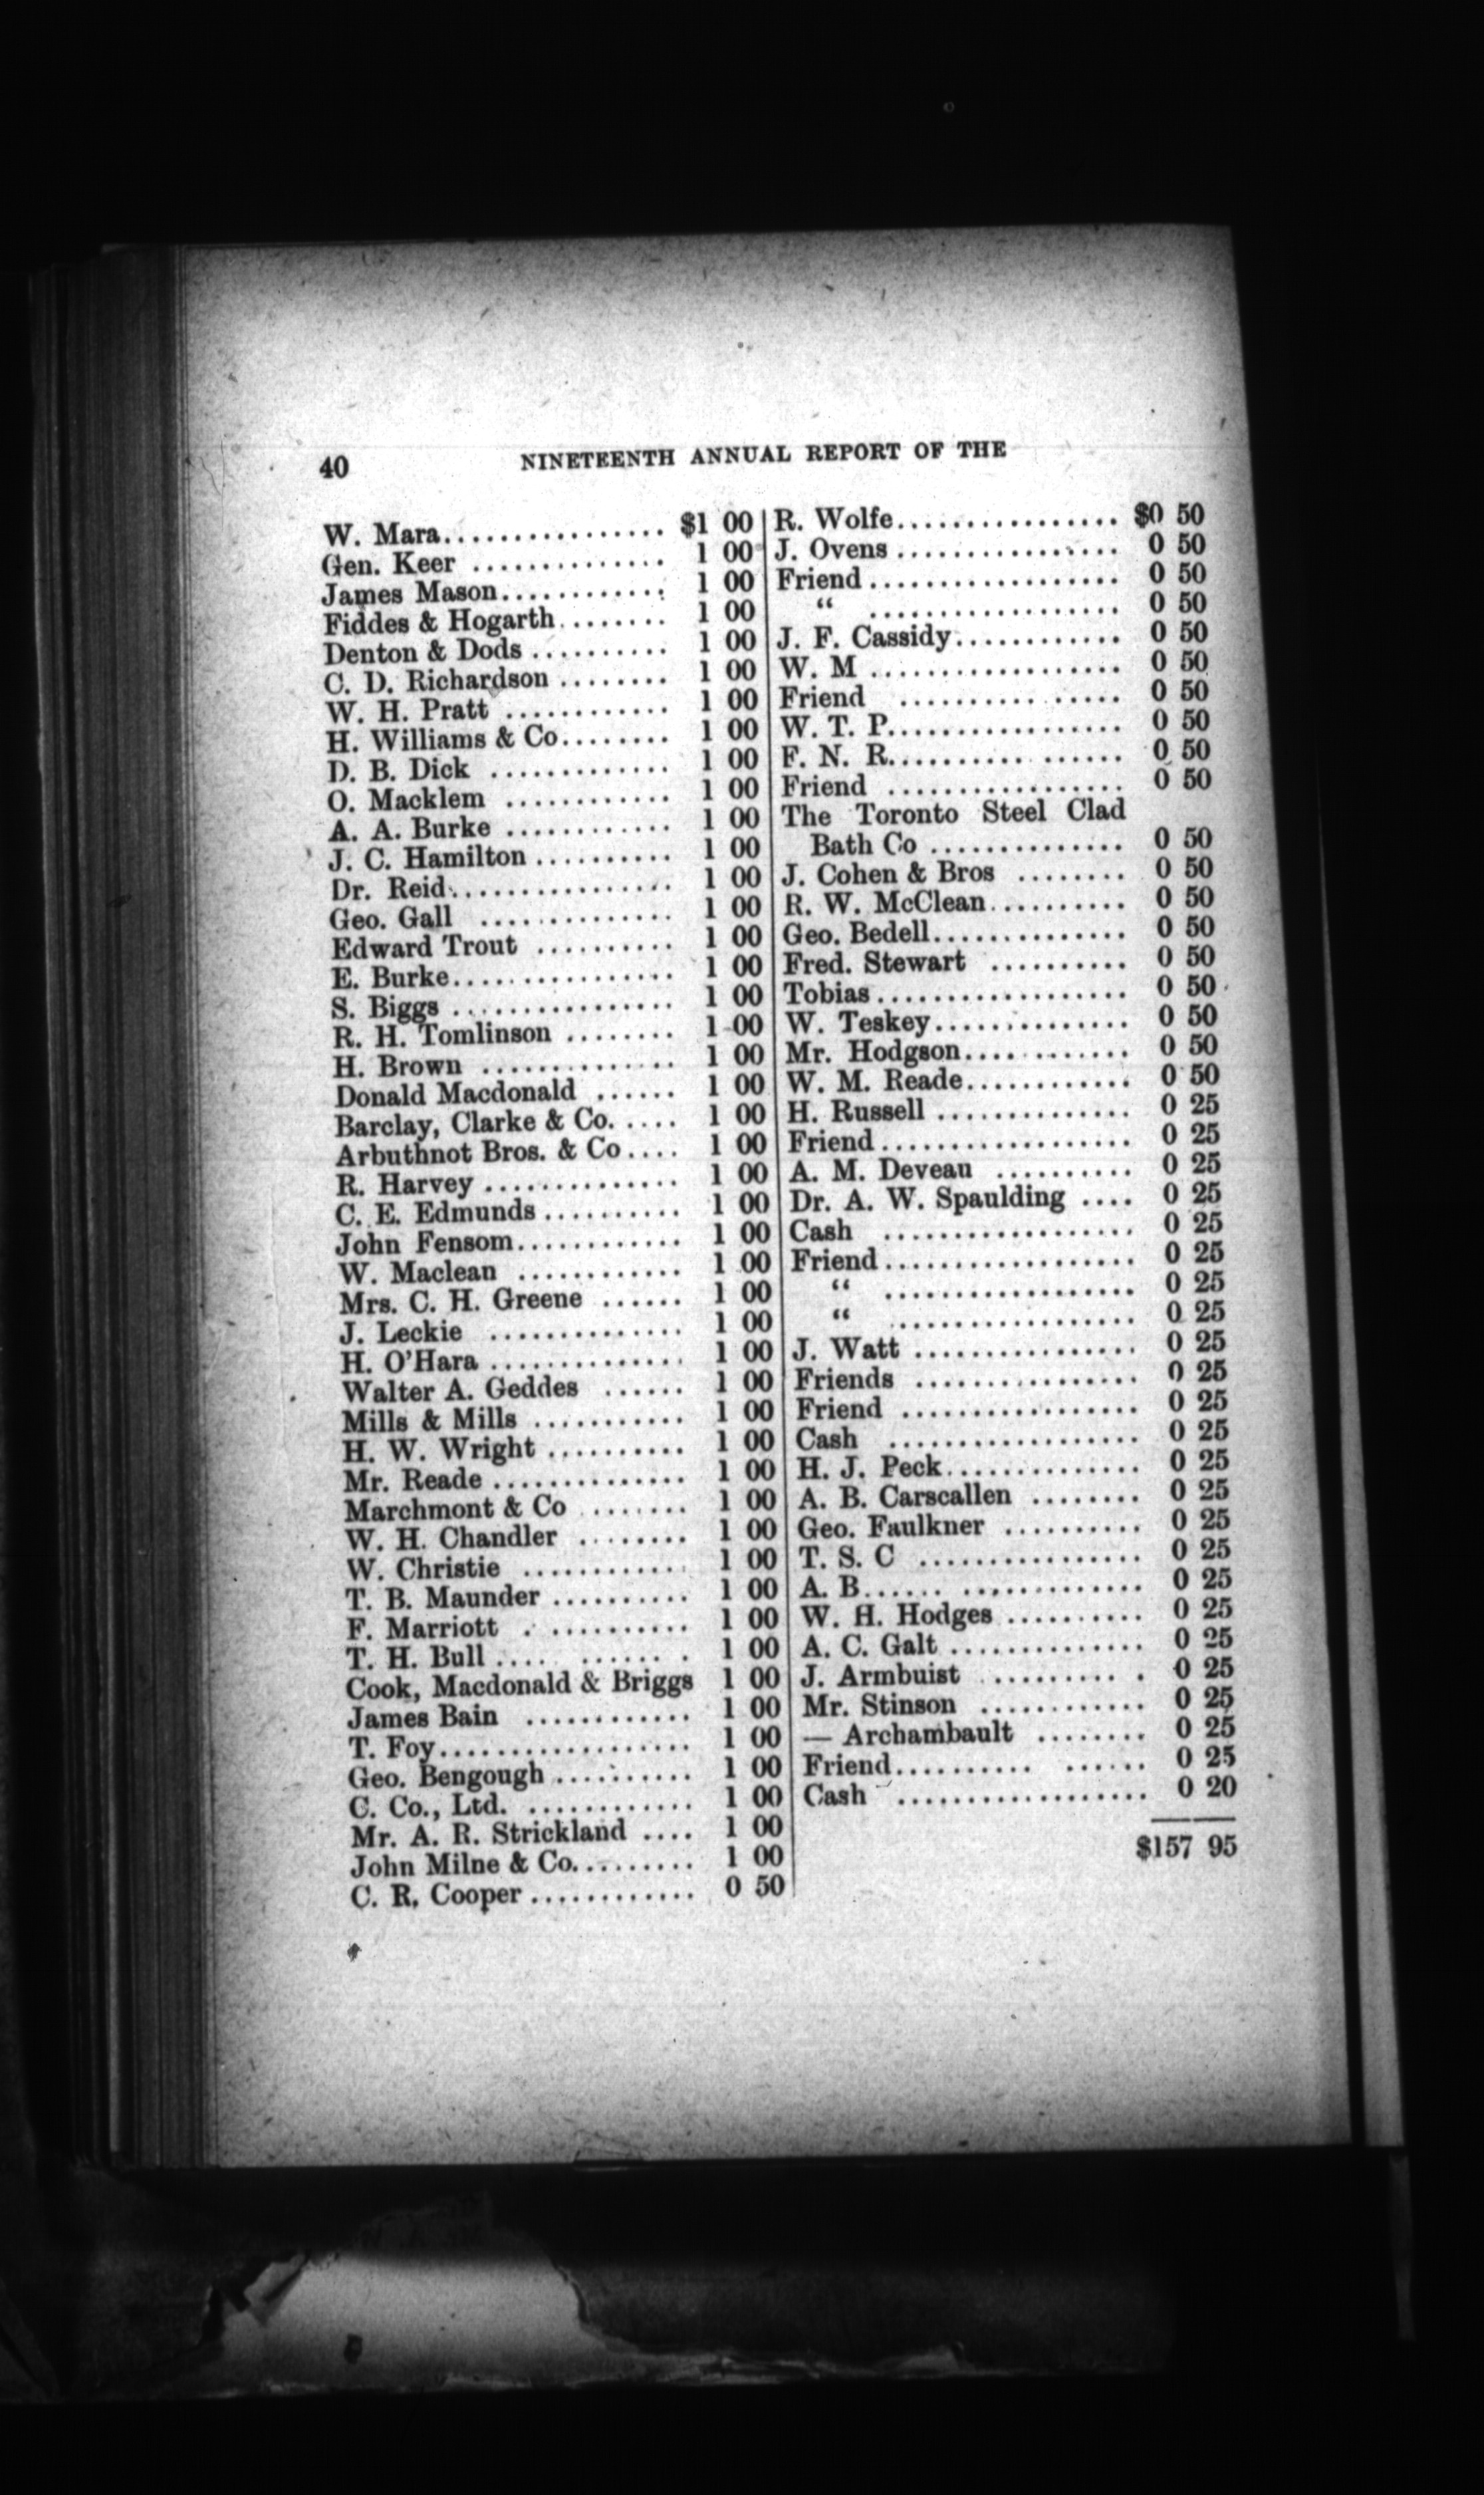 40 NINETEENTH ANNUAL REPORT OF THE
W. Mara................ $1 00
Gen. Keer .............. 1 00
James Mason............ 1 00
Fiddes & Hogarth........ 1 00
Denton & Dods .......... 1 00
C. D. Richardson ........ 1 00
W. H. Pratt ............ 1 00
H. Williams & Co........ 1 00
D. B. Dick ............. 1 00
O. Macklem ............ 1 00
A. A. Burke ............ 1 00
J. C. Hamilton .......... 1 00
Dr. Reid................ 1 00
Geo. Gall .............. 1 00
Edward Trout .......... 1 00
E. Burke................ 1 00
S. Biggs ................ 1 00
R. H. Tomlinson ........ 1 00
H. Brown .............. 1 00
Donald Macdonald ...... 1 00
Barclay, Clarke & Co. .... 1 00
Arbuthnot Bros. & Co.... 1 00
R. Harvey .............. 1 00
C. E. Edmunds .......... 1 00
John Fensom............ 1 00
W. Maclean ............ 1 00
Mrs. C. H. Greene ...... 1 00
J. Leckie .............. 1 00
H. O'Hara .............. 1 00
Walter A. Geddes ...... 1 00
Mills & Mills ........... 1 00
H. W. Wright .......... 1 00
Mr. Reade .............. 1 00
Marchmont & Co ....... 1 00
W. H. Chandler ........ 1 00
W. Christie ............ 1 00
T. B. Maunder .......... 1 00
F. Marriott . .......... 1 00
T. H. Bull .... ...... . 1 00
Cook, Macdonald & Briggs 1 00
James Bain ............ 1 00
T. Foy.................. 1 00
Geo. Bengough .......... 1 00
C. Co., Ltd. ............ 1 00
Mr. A. R. Strickland .... 1 00
John Milne & Co......... 1 00
C. R. Cooper ............ 0 50
R. Wolfe................ $0 50
J. Ovens ................ 0 50
Friend .................. 0 50
“ .................. 0 50
J. F. Cassidy............ 0 50
W. M .................. 0 50
Friend ................ 0 50
W. T. P................. 0 50
F. N. R.......... ...... 0 50
Friend ................. 0 50
The Toronto Steel Clad
Bath Co .............. 0 50
J. Cohen & Bros ........ 0 50
R. W. McClean.......... 0 50
Geo. Bedell.............. 0 50
Fred. Stewart .......... 0 50
Tobias.................. 0 50
W. Teskey.............. 0 50
Mr. Hodgson............ 0 50
W. M. Reade............ 0 50
H. Russell .............. 0 25
Friend.................. 0 25
A. M. Deveau .......... 0 25
Dr. A. W. Spaulding .... 0 25
Cash .................. 0 25
Friend.................. 0 25
“ .................. 0 25
“ .................. 0 25
J. Watt ................ 0 25
Friends ................ 0 25
Friend ................. 0 25
Cash .................. 0 25
H. J. Peck.............. 0 25
A. B. Carscallen ........ 0 25
Geo. Faulkner .......... 0 25
T. S. C ................ 0 25
A. B...... ............. 0 25
W. H. Hodges .......... 0 25
A. C. Galt .............. 0 25
J. Armbuist ......... . 0 25
Mr. Stinson ............ 0 25
— Archambault ........ 0 25
Friend.......... ...... 0 25
Cash .................. 0 20
$157 95